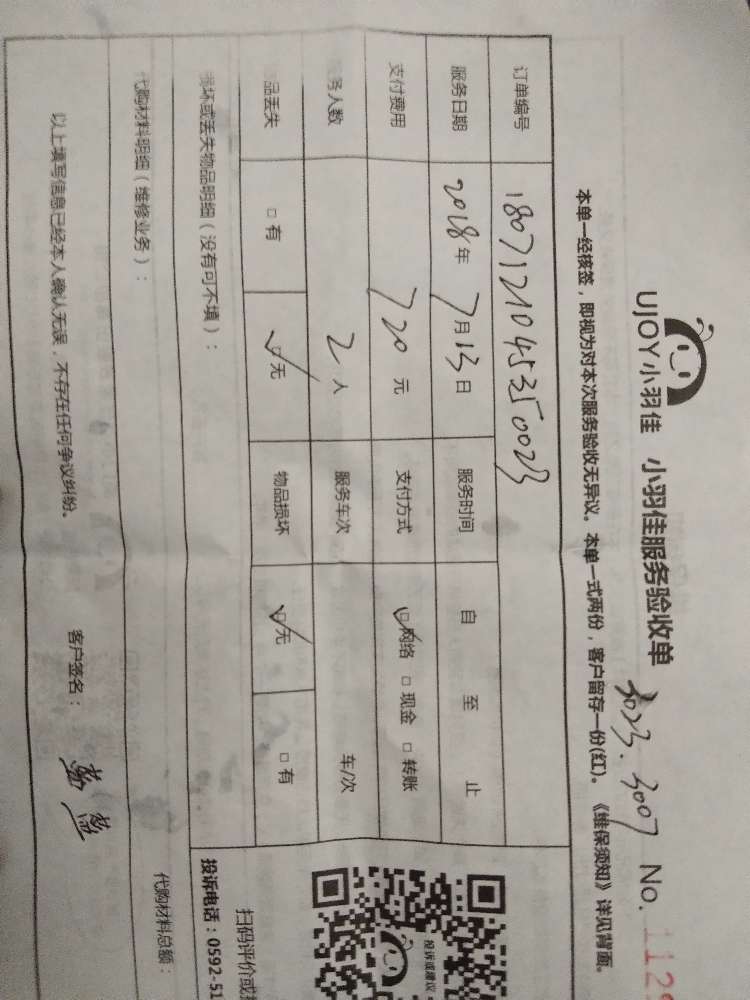 UJOY小羽佳 小羽佳服务验收单 No. 112
3023.3007
本单一经核签，即视为对本次服务验收无异议。本单一式两份，客户留存一份(红)。《维保须知》详见背面。
订单编号 1807121045350023
服务日期 2018年7月13日 服务时间 自 至 止
支付费用 720元 支付方式 ☑网络 □现金 □转账
务人数 2人 服务车次 车/次
品丢失 □有 ☑无 物品损坏 ☑无 □有
损坏或丢失物品明细（没有可不填）：
代购材料明细（维修业务）： 代购材料总额：
以上填写信息已经本人确认无误，不存在任何争议纠纷。 客户签名：
投诉或建议
扫码评价或
投诉电话：0592-51